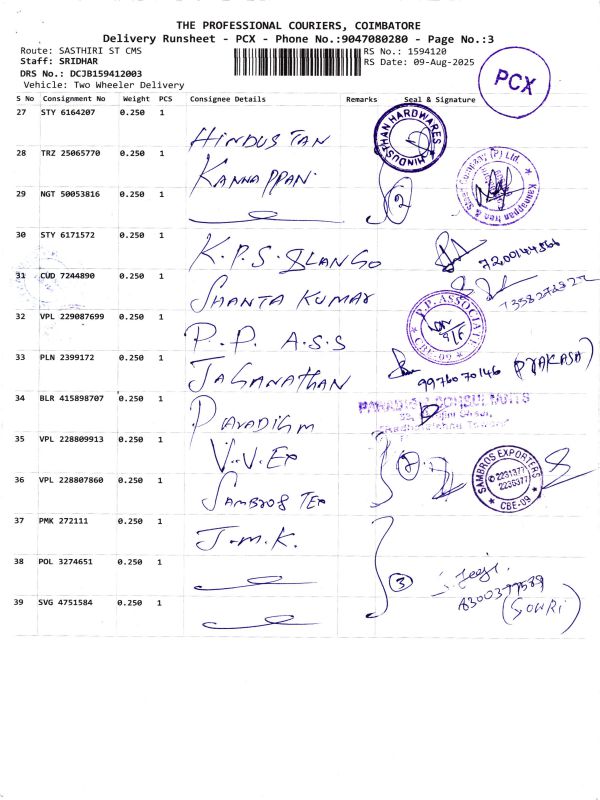 THE PROFESSIONAL COURIERS, COIMBATORE
Delivery Runsheet - PCX - Phone No.:9047080280 - Page No.:3
Route: SASTHIRI ST CMS
RS No.: 1594120
Staff: SRIDHAR
RS Date: 09-Aug-2025
DRS No.: DCJB159412003
Vehicle: Two Wheeler Delivery
PCX
S No Consignment No Weight PCS Consignee Details Remarks Seal & Signature
27 STY 6164207 0.250 1 HINDUSTAN
HINDUSTHAN HARDWARES
28 TRZ 25065770 0.250 1 KANNAPPAN
29 NGT 50053816 0.250 1
2
Kannappan Iron & Steel Company (P) Ltd.
30 STY 6171572 0.250 1 K.P.S. ELANGO
7200144566
31 CUD 7244890 0.250 1 SHANTA KUMAR
32 VPL 229087699 0.250 1 P.P. A.S.S
P.P. ASSOCIATE
CBE-09
33 PLN 2399172 0.250 1 JAGANATHAN
9976070146 (PRAKASA)
34 BLR 415898707 0.250 1 PARADIGM
PARADIGM CONSULTANTS
35 VPL 228809913 0.250 1 V.V.EX
36 VPL 228807860 0.250 1 SAMBROS TEX
2
SAMBROS EXPORTERS
2231377
2236377
CBE-09
37 PMK 272111 0.250 1 J.M.K.
38 POL 3274651 0.250 1
39 SVG 4751584 0.250 1
3
(GOWRI)